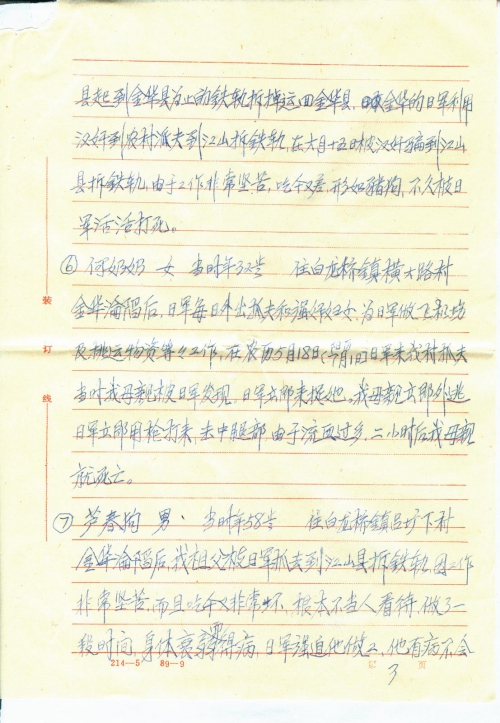 县起到金华县为止的铁轨拆掉运回金华县,金华的日军利用
汉奸到农村派夫到江山拆铁轨,在六月十五日被汉奸骗到江山
县拆铁轨,由于工作非常坚苦,吃令又差,形如猪狗,不久被日
军活活打死。
⑥ 何奶奶 女 当时年32岁 住白龙桥镇横大路村
金华沦陷后,日军每日外出抓夫和强奸妇女,为日军做飞机场
及挑运物资等々工作,在农历5月18日(阳历 月1日)日军来我村抓夫
当时我母亲被日军发现,日军立即来捉他。我母亲立即外逃
日军立即用枪打来,击中腿部,由于流血过多,二小时后我母亲
就死亡。
⑦ 芦春狗 男、 当时年58岁 住白龙桥镇 圩下村
金华沦陷后,我祖父被日军抓去到江山县拆铁轨,因工作
非常坚苦,而且吃令又非常坏,根本不当人看待,做了一
段时间,身体衰弱得病,日军强迫他做工,他有病不会
装
订
线
214—5 89—9
记 页
3